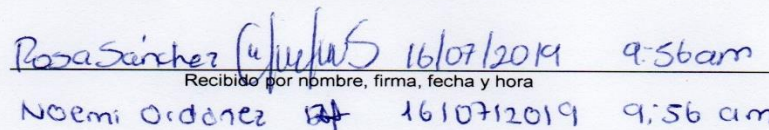 Rosa Sánchez 16/07/2019 9:56am
Recibido por nombre, firma, fecha y hora
Noemi Ordóñez 16/07/2019 9:56 am